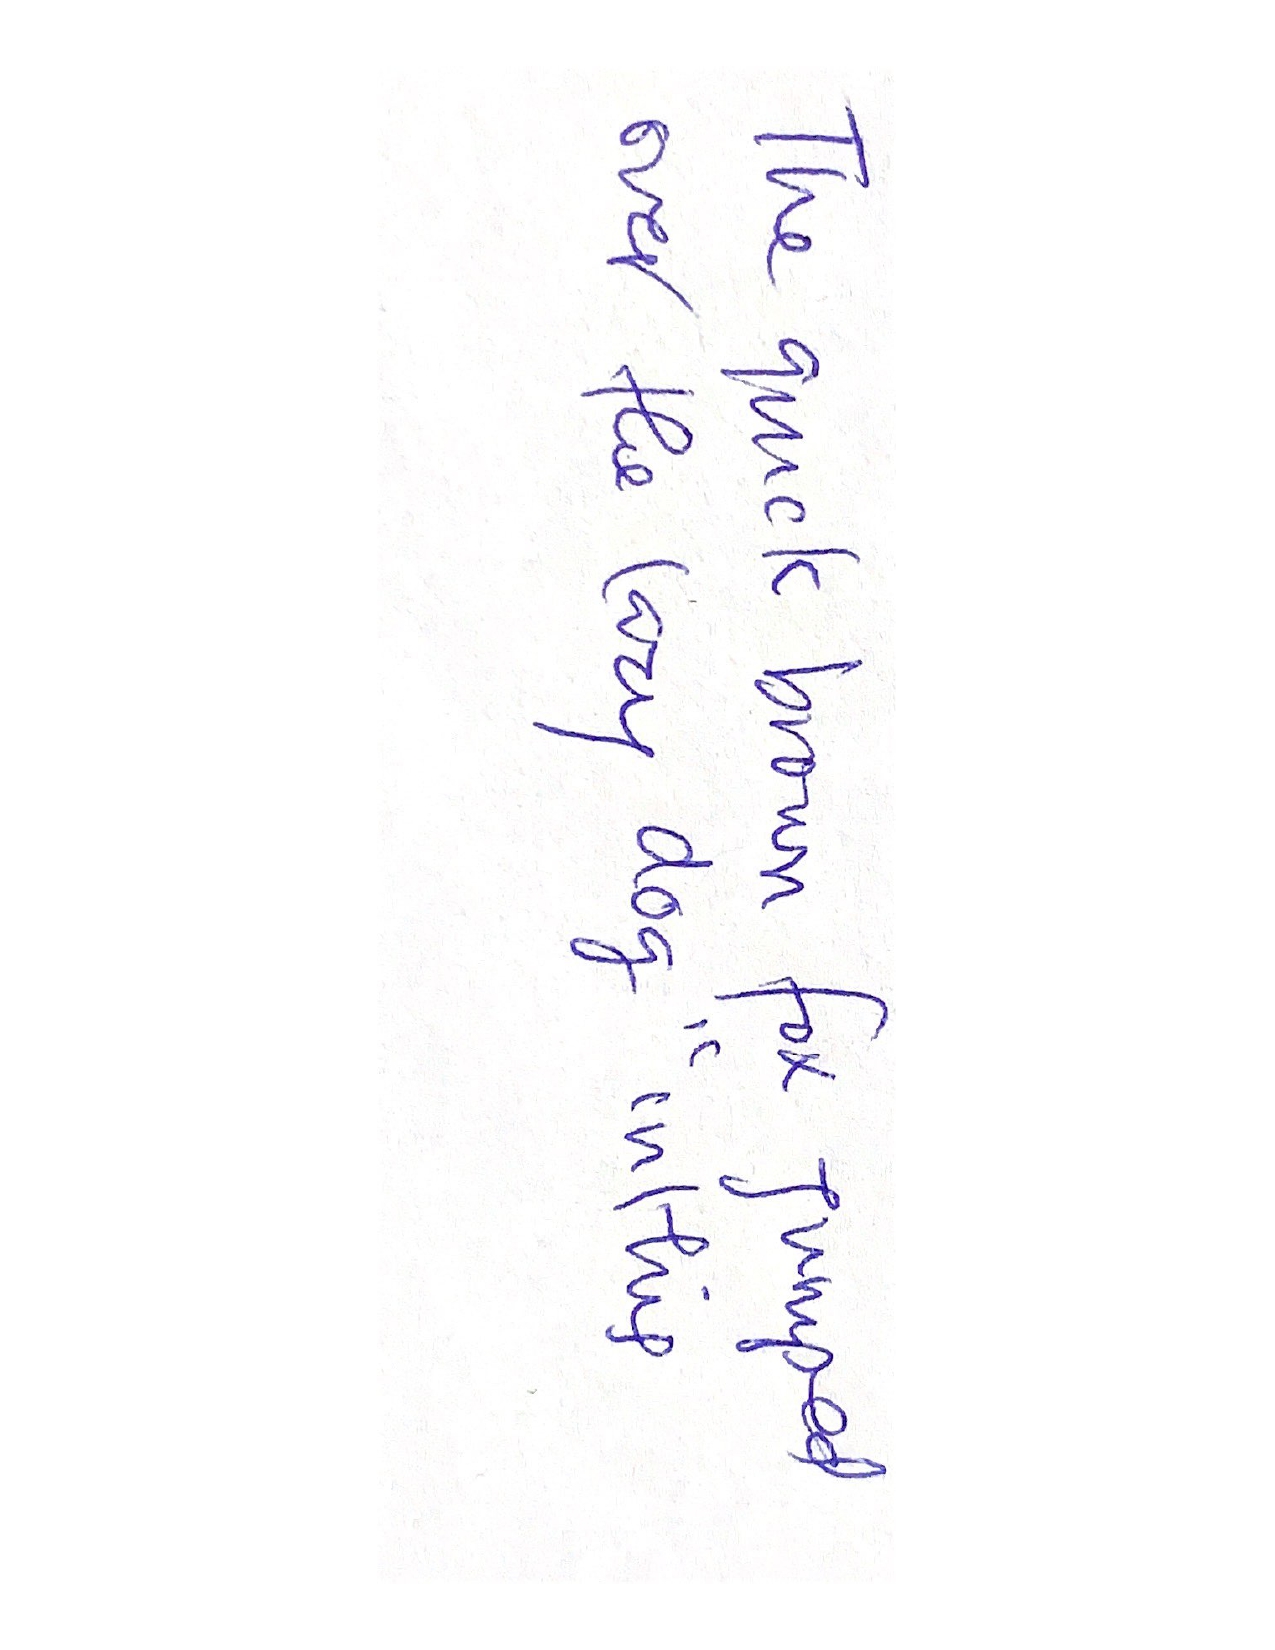 The quick brown fox jumped
over the lazy dog "